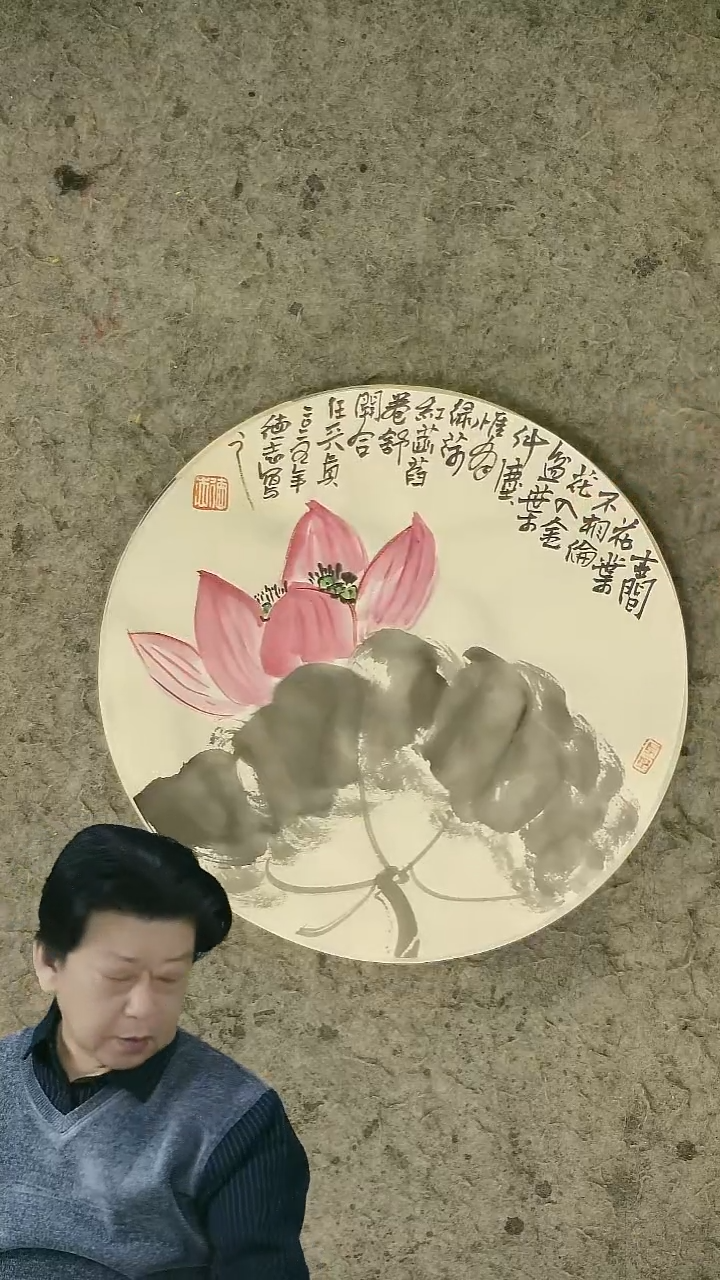 世間
花葉
不相倫
花入金
盆葉
作塵
惟有
綠荷
紅菡萏
卷舒
開合
任天真
年
德志寫